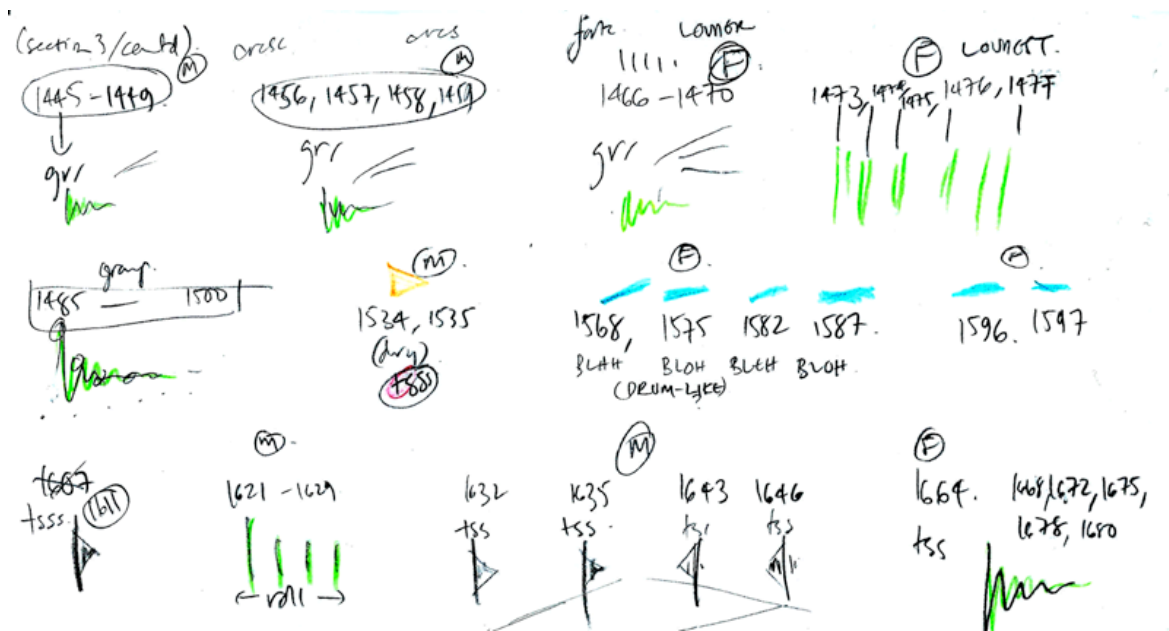 (section 3/contd). M
1445 - 1449
grr
arcs M
1456, 1457, 1458, 1459
grr
LOWER
F
1466 - 1470
grr
F LOWEST.
1473, 1474, 1475, 1476, 1477
group
1485 — 1500
M
1534, 1535
(dry)
tsss
F
1568, 1575 1582 1587.
BLAH BLOH BLEH BLOH
(DRUM-LIKE)
1596. 1597
1607
tsss. 1611
M
1621 - 1629
roll
M
1632 1635 1643 1646
tss tss tss tss
F
1664.
tss
1668, 1672, 1675,
1678, 1680